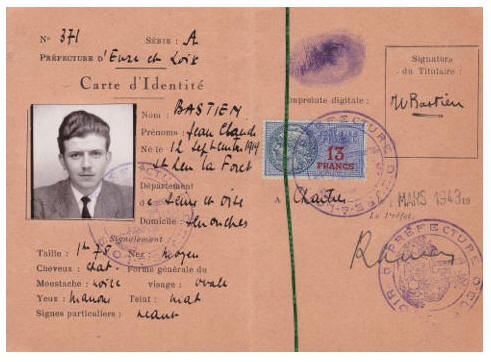 N° 371 SÉRIE : A
PRÉFECTURE D'Eure et Loir
Carte d'Identité
Nom : BASTIEN
Prénoms : Jean Claude
Né le 12 Septembre 1919
St Leu la Foret
Département
de Seine et Oise
Domicile : Senonches
Signalement
Taille : 1m 75 Nez : moyen
Cheveux : chat. Forme générale du
Moustache : visage : ovale
Yeux : marrons Teint : mat
Signes particuliers : neant
Empreinte digitale :
Signature
du Titulaire :
Bastien
13
FRANCS
A Chartres MARS 1943 19
Le Préfet,
PRÉFECTURE D'E